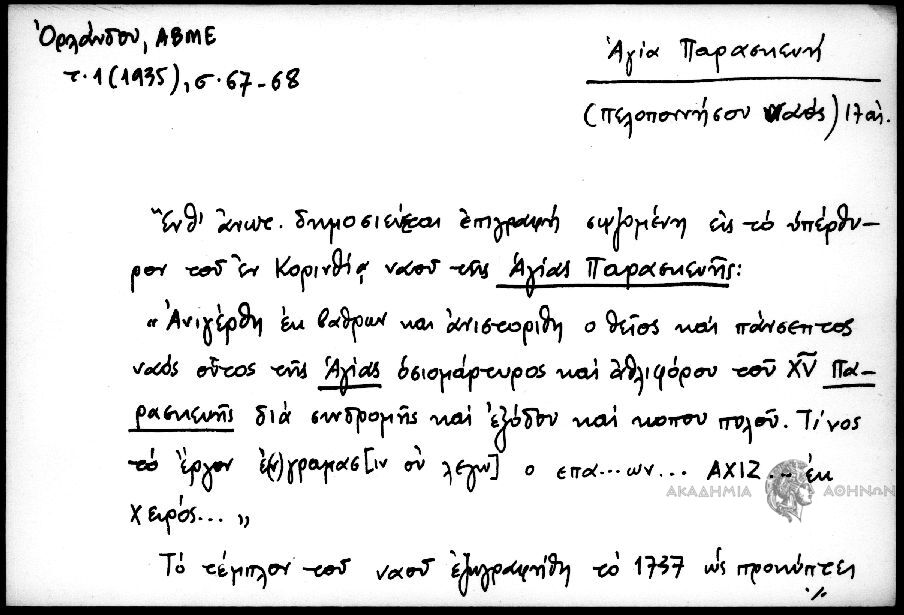 Ὀρλάνδου, ΑΒΜΕ
τ. 1 (1935), σ. 67-68
Ἁγία Παρασκευή
(Πελοποννήσου ναός) 17 αἰ.
Ἔνθ' ἀνωτ. δημοσιεύεται ἐπιγραφή σῳζομένη εἰς τό ὑπέρθυ-
ρον τοῦ ἐν Κορινθίᾳ ναοῦ τῆς Ἁγίας Παρασκευῆς:
«Ἀνιγέρθη ἐκ βαθρων και ἀνιστοριθη ο θεῖος καί πάνσεπτος
ναός οὗτος τῆς Ἁγίας ὁσιομάρτυρος καί ἀθλιφόρου τοῦ ΧῩ Πα-
ρασκευῆς διά συνδρομῆς καί ἐξόδου καί κοπου πολοῦ. Τίνος
τό ἔργον ἐ(ν)γραμασ[ιν οὐ λεγω] ο επα...ων... ΑΧΙΖ... ἐκ
χειρός...»
ΑΚΑΔΗΜΙΑ ΑΘΗΝΩΝ
Τό τέμπλον τοῦ ναοῦ ἐζωγραφήθη τό 1737 ὡς προκύπτει
./.